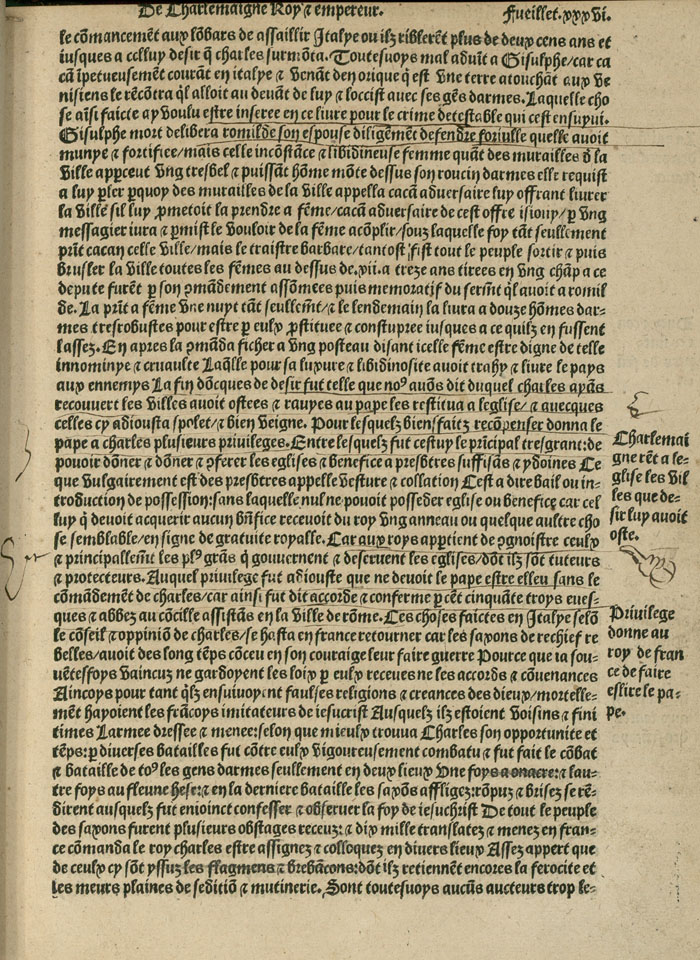 De Charlemaigne Roy ⁊ empereur. Fueillet.xxxvi.
le cõmancement aux lõbars de assaillir Italye ou ilz riblerẽt plus de deux cens ans et
iusques a celluy desir q̃ charles surmõta. Toutesuoys mal aduĩt a Gisulphe/car ca
cã ĩpetueusemẽt courãt en italye ⁊ venãt den orique q̃ est vne terre atouchãt aux ve
nisiens le rẽcõtra q̃l alloit au deuãt de luy ⁊ loccist auec ses gẽs darmes. Laquelle cho
se aĩsi faicte ay voulu estre inseree en ce liure pour le crime detestable qui cest ensuyui.
Gisulphe mort delibera romilde son espouse diligẽmẽt defendre foriulle quelle auoit
munye ⁊ fortifiee/mais celle incõstãce ⁊ libidineuse femme quãt des murailles d̃ la
ville apperceut vng tresbel ⁊ puissãt hõme mõte dessus son roucin darmes elle requist
a luy p̱ler p̱quoy des murailles de la ville appella cacã aduersaire luy offrant liurer
la ville sil luy p̱metoit la prendre a fẽme/cacã aduersaire de cest offre ioyoux/p̱ vng
messagier iura ⁊ p̱mist le vouloir de la fẽme acõplir/souz laquelle foy tãt seullement
prĩt cacan celle ville/mais le traistre barbare/tantost fist tout le peuple sortir ⁊ puis
brusler la ville toutes les fẽmes au dessus de.xii.a treze ans tirees en vng chãp a ce
depute furẽt p̱ son ꝯmãdement assõmees puis memoratif du sermẽt q̃l auoit a romil
de. La prĩt a fẽme vne nuyt tãt seullemẽt/⁊ le lendemain la liura a douze hõmes dar-
mes tresrobustes pour estre p̱ eulx p̱stituee ⁊ constupree iusques a ce quilz en fussent
lassez. En apres la ꝯmãda ficher a vng posteau disant icelle fẽme estre digne de telle
innominye ⁊ cruaulte Laq̃lle pour sa luxure ⁊ libidinosity auoit trahy ⁊ liure le pays
aux ennemys La fin dõcques de desir fut telle que noꝰ auõs dit duquel charles ayãs
recouuert les villes auoit ostees ⁊ rauyes au pape les restitua a leglise/⁊ auecques
celles cy adiousta spolet/⁊ bien veigne. Pour lesquelz biensfaitz recõpenser donna le
pape a charles plusieurs priuileges. Entre lesquelz fut cestuy le prĩcipal tresgrant:de
pouoir dõner ⁊ dõner ⁊ ꝯferer les eglises ⁊ benefice a presbtres suffisãs ⁊ ydoines Ce
que vulgairement est des presbtres appelle vesture ⁊ collation Cest a dire bail ou in-
troduction de possession:sans laquelle nul ne pouoit posseder eglise ou benefice car cel
luy q̃ deuoit acquerir aucun bñfice receuoit du roy vng anneau ou quelque aultre cho
se semblable/en signe de gratuite royalle. Car aux roys appertient de ꝯgnoistre ceulx
⁊ principallemẽt les plꝰ grãs q̃ gouuernent ⁊ deseruent les eglises/dõt ilz sõt tuteurs
⁊ protecteurs. Auquel priuilege fut adiouste que ne deuoit le pape estre esleu sans le
cõmãdemẽt de charles/car ainsi fut dit accorde ⁊ conferme p̱ cẽt cinquãte troys eues-
ques ⁊ abbez au cõcille assistãs en la ville de rõme. Ces choses faictes en Italye selõ
le cõseil ⁊ oppiniõ de charles/se hasta en france retourner car les saxons de rechief re
belles/auoit des long tẽps cõceu en son couraige leur faire guerre Pource que ia sou-
uẽtesfoys vaincuz ne gardoyent les loix p̱ eulx receues ne les accords ⁊ cõuenances
Aincoys pour tant q̃lz ensuiuoyent faulses religions ⁊ creances des dieux/mortelle-
mẽt hayoient les frãcoys imitateurs de iesucrist Ausquelz ilz estoient voisins ⁊ fini
times Larmee dressee ⁊ menee:selon que mieulx trouua Charles son opportunite et
tẽps:p̱ diuerses batailles fut cõtre eulx vigoureusement combatu ⁊ fut fait le cõbat
⁊ bataille de toꝰ les gens darmes seullement en deux lieux vne foys a onacre:⁊ lau-
tre foys au fleuue hese:⁊ en la derniere bataille les saxõs affligez:rõpuz ⁊ brisez se rẽ-
dirent ausquelz fut enioinct confesser ⁊ obseruer la foy de iesuchrist De tout le peuple
des saxons furent plusieurs obstages receuz:⁊ dix mille translatez ⁊ menez en fran-
ce cõmanda le roy charles estre assignez ⁊ colloquez en diuers lieux Assez appert que
de ceulx cy sõt yssuz les flagmens ⁊ brebãcons:dõt ilz retiennẽt encores la ferocite et
les meurs plaines de seditiõ ⁊ mutinerie. Sont toutesuoys aucũs aucteurs trop le-
Charlemai
gne rẽt a le-
glise les vil
les que de-
sir luy auoit
oste.
Priuilege
donne au
roy de fran
ce de faire
eslire le pa-
pe.